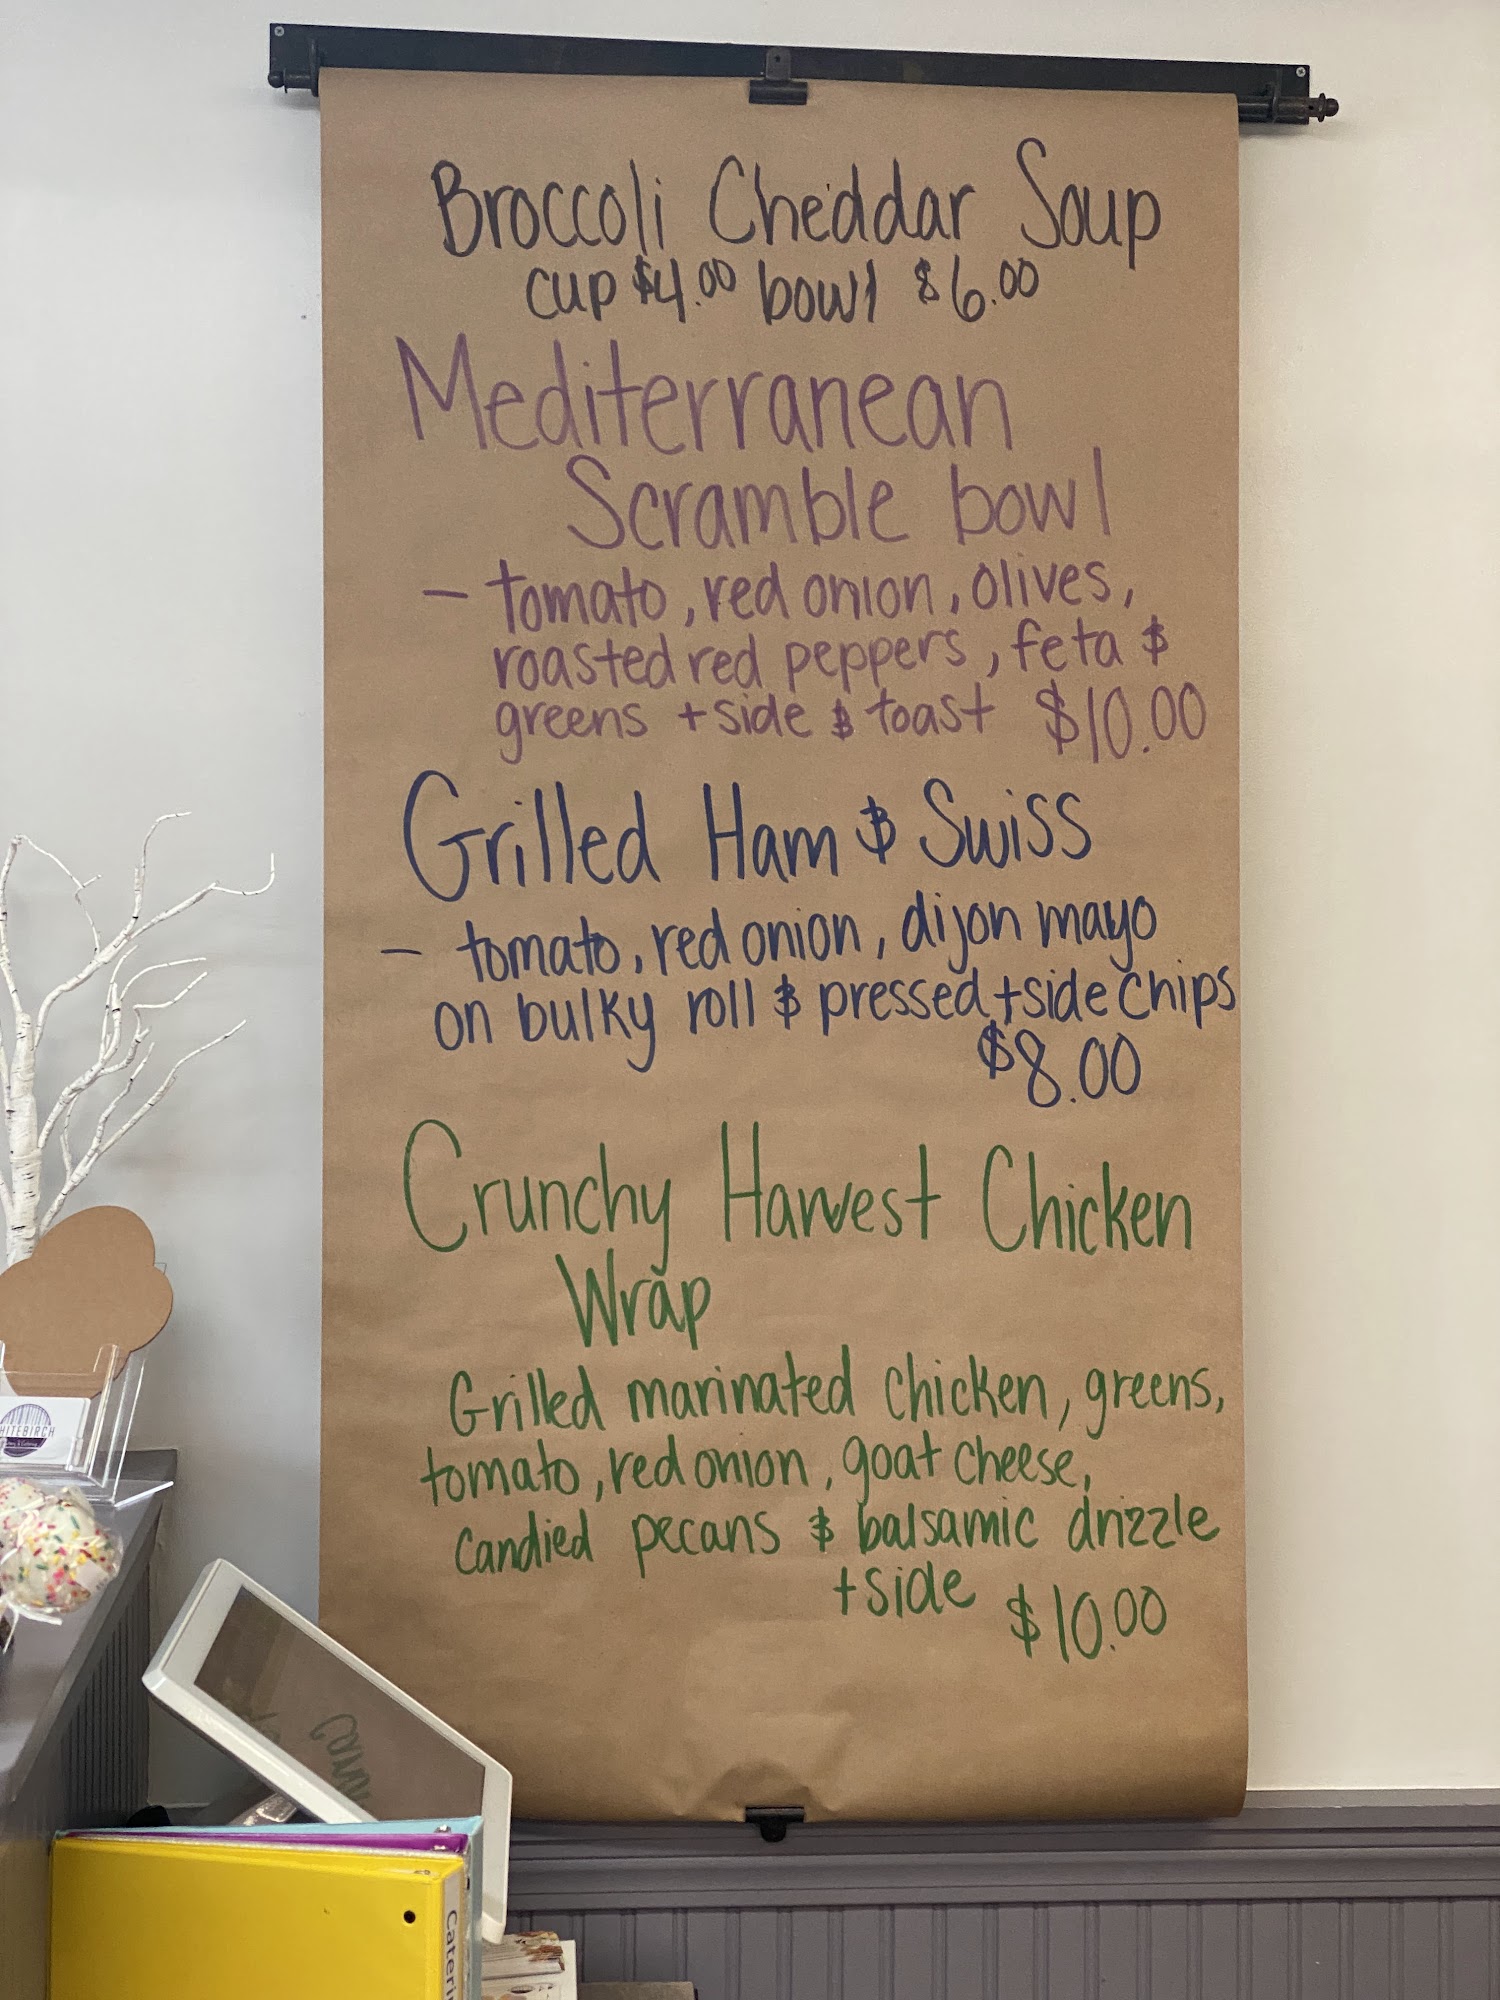 Broccoli Cheddar Soup
cup $4.00 bowl $6.00
Mediterranean
Scramble bowl
- tomato, red onion, olives,
roasted red peppers, feta &
greens + side & toast $10.00
Grilled Ham & Swiss
- tomato, red onion, dijon mayo
on bulky roll & pressed + side chips
$8.00
Crunchy Harvest Chicken
Wrap
Grilled marinated chicken, greens,
tomato, red onion, goat cheese,
candied pecans & balsamic drizzle
+ side $10.00
HITEBIRCH
Cateri